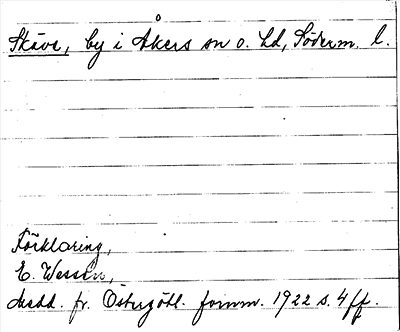 Skäve, by i Åkers sn o. hd, Söderm. l.
Förklaring,
E. Wessén,
Medd. fr. Östergötl. fornm. 1922 s. 4 ff.